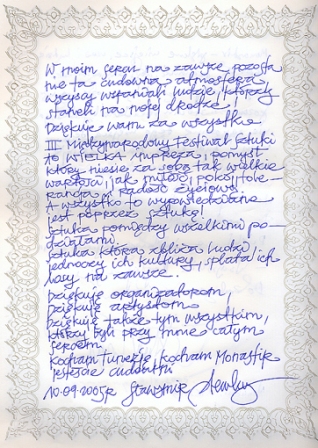 W moim sercu na zawsze pozosta
nie ta cudowna atmosfera
wszyscy wspaniali ludzie, którzy
stanęli na mojej drodze!
Dziękuję wam za wszystko
III Międzynarodowy Festiwal Sztuki
to WIELKA impreza, pomysł
który niesie za sobą tak wielkie
wartości, jak miłość, pokój, tole-
rancja, radość życiowa!
A wszystko to wypowiedziane
jest poprzez sztukę!
Sztuka pomiędzy wszelkimi po-
działami.
Sztuka która zbliża ludzi,
jednoczy ich kultury, splata ich
losy na zawsze.
Dziękuję organizatorom,
Dziękuję artystom
Dziękuję także tym wszystkim,
którzy byli przy mnie całym
sercem
Kocham Tunezję, kocham Monastir
jesteście cudowni
10.09.2005r Sławomir